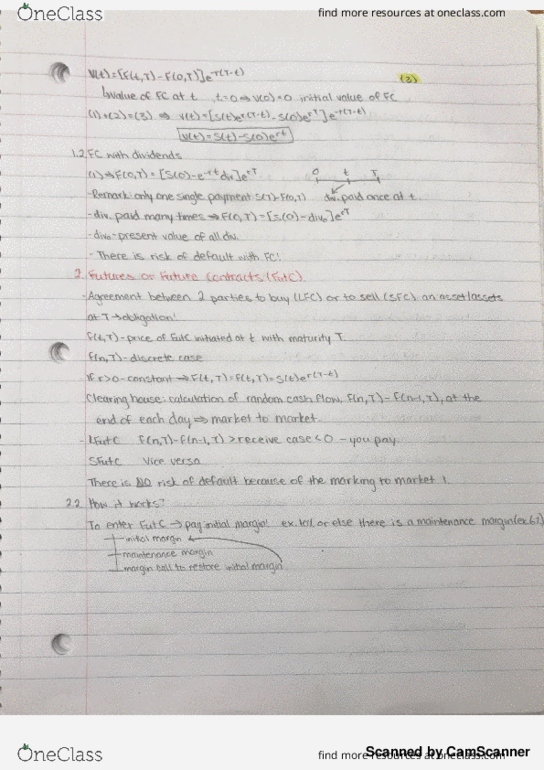 OneClass
find more resources at oneclass.com
V(t)=[F(t,T)-F(0,T)]e^-r(T-t) (3)
value of FC at t, t=0⇒V(0)=0 initial value of FC
(1)+(2)=(3) ⇒ V(t)=[S(t)e^r(T-t)-S(0)e^rT]e^-r(T-t)
V(t)=S(t)-S(0)e^rt
1.2 FC with dividends
(1)⇒F(0,T)=[S(0)-e^-rt div]e^rT 0 t T
-Remark: only one single payment S(T)-F(0,T) div. paid once at t
-div. paid many times ⇒ F(0,T)=[S(0)-div0]e^rT
-div0-present value of all div.
-There is risk of default with FC!
2. Futures or Future Contracts (FutC)
-Agreement between 2 parties to buy (LFC) or to sell (SFC) an asset/assets
at T→obligation!
f(t,T)-price of FutC initiated at t with maturity T.
f(n,T)-discrete case
If r>0-constant → F(t,T)=f(t,T)=S(t)e^r(T-t)
Clearing house: calculation of random cash flow, f(n,T)-f(n-1,T), at the
end of each day ⇒ market to market.
-LFutC f(n,T)-f(n-1,T) >receive case<0 - you pay
SFutC Vice versa
There is NO risk of default because of the marking to market!
2.2 How it works?
To enter FutC → pay initial margin! ex. 10% or else there is a maintenance margin (ex.
initial margin
maintenance margin
margin call to restore initial margin
OneClass
find more resources at oneclass.com
Scanned by CamScanner